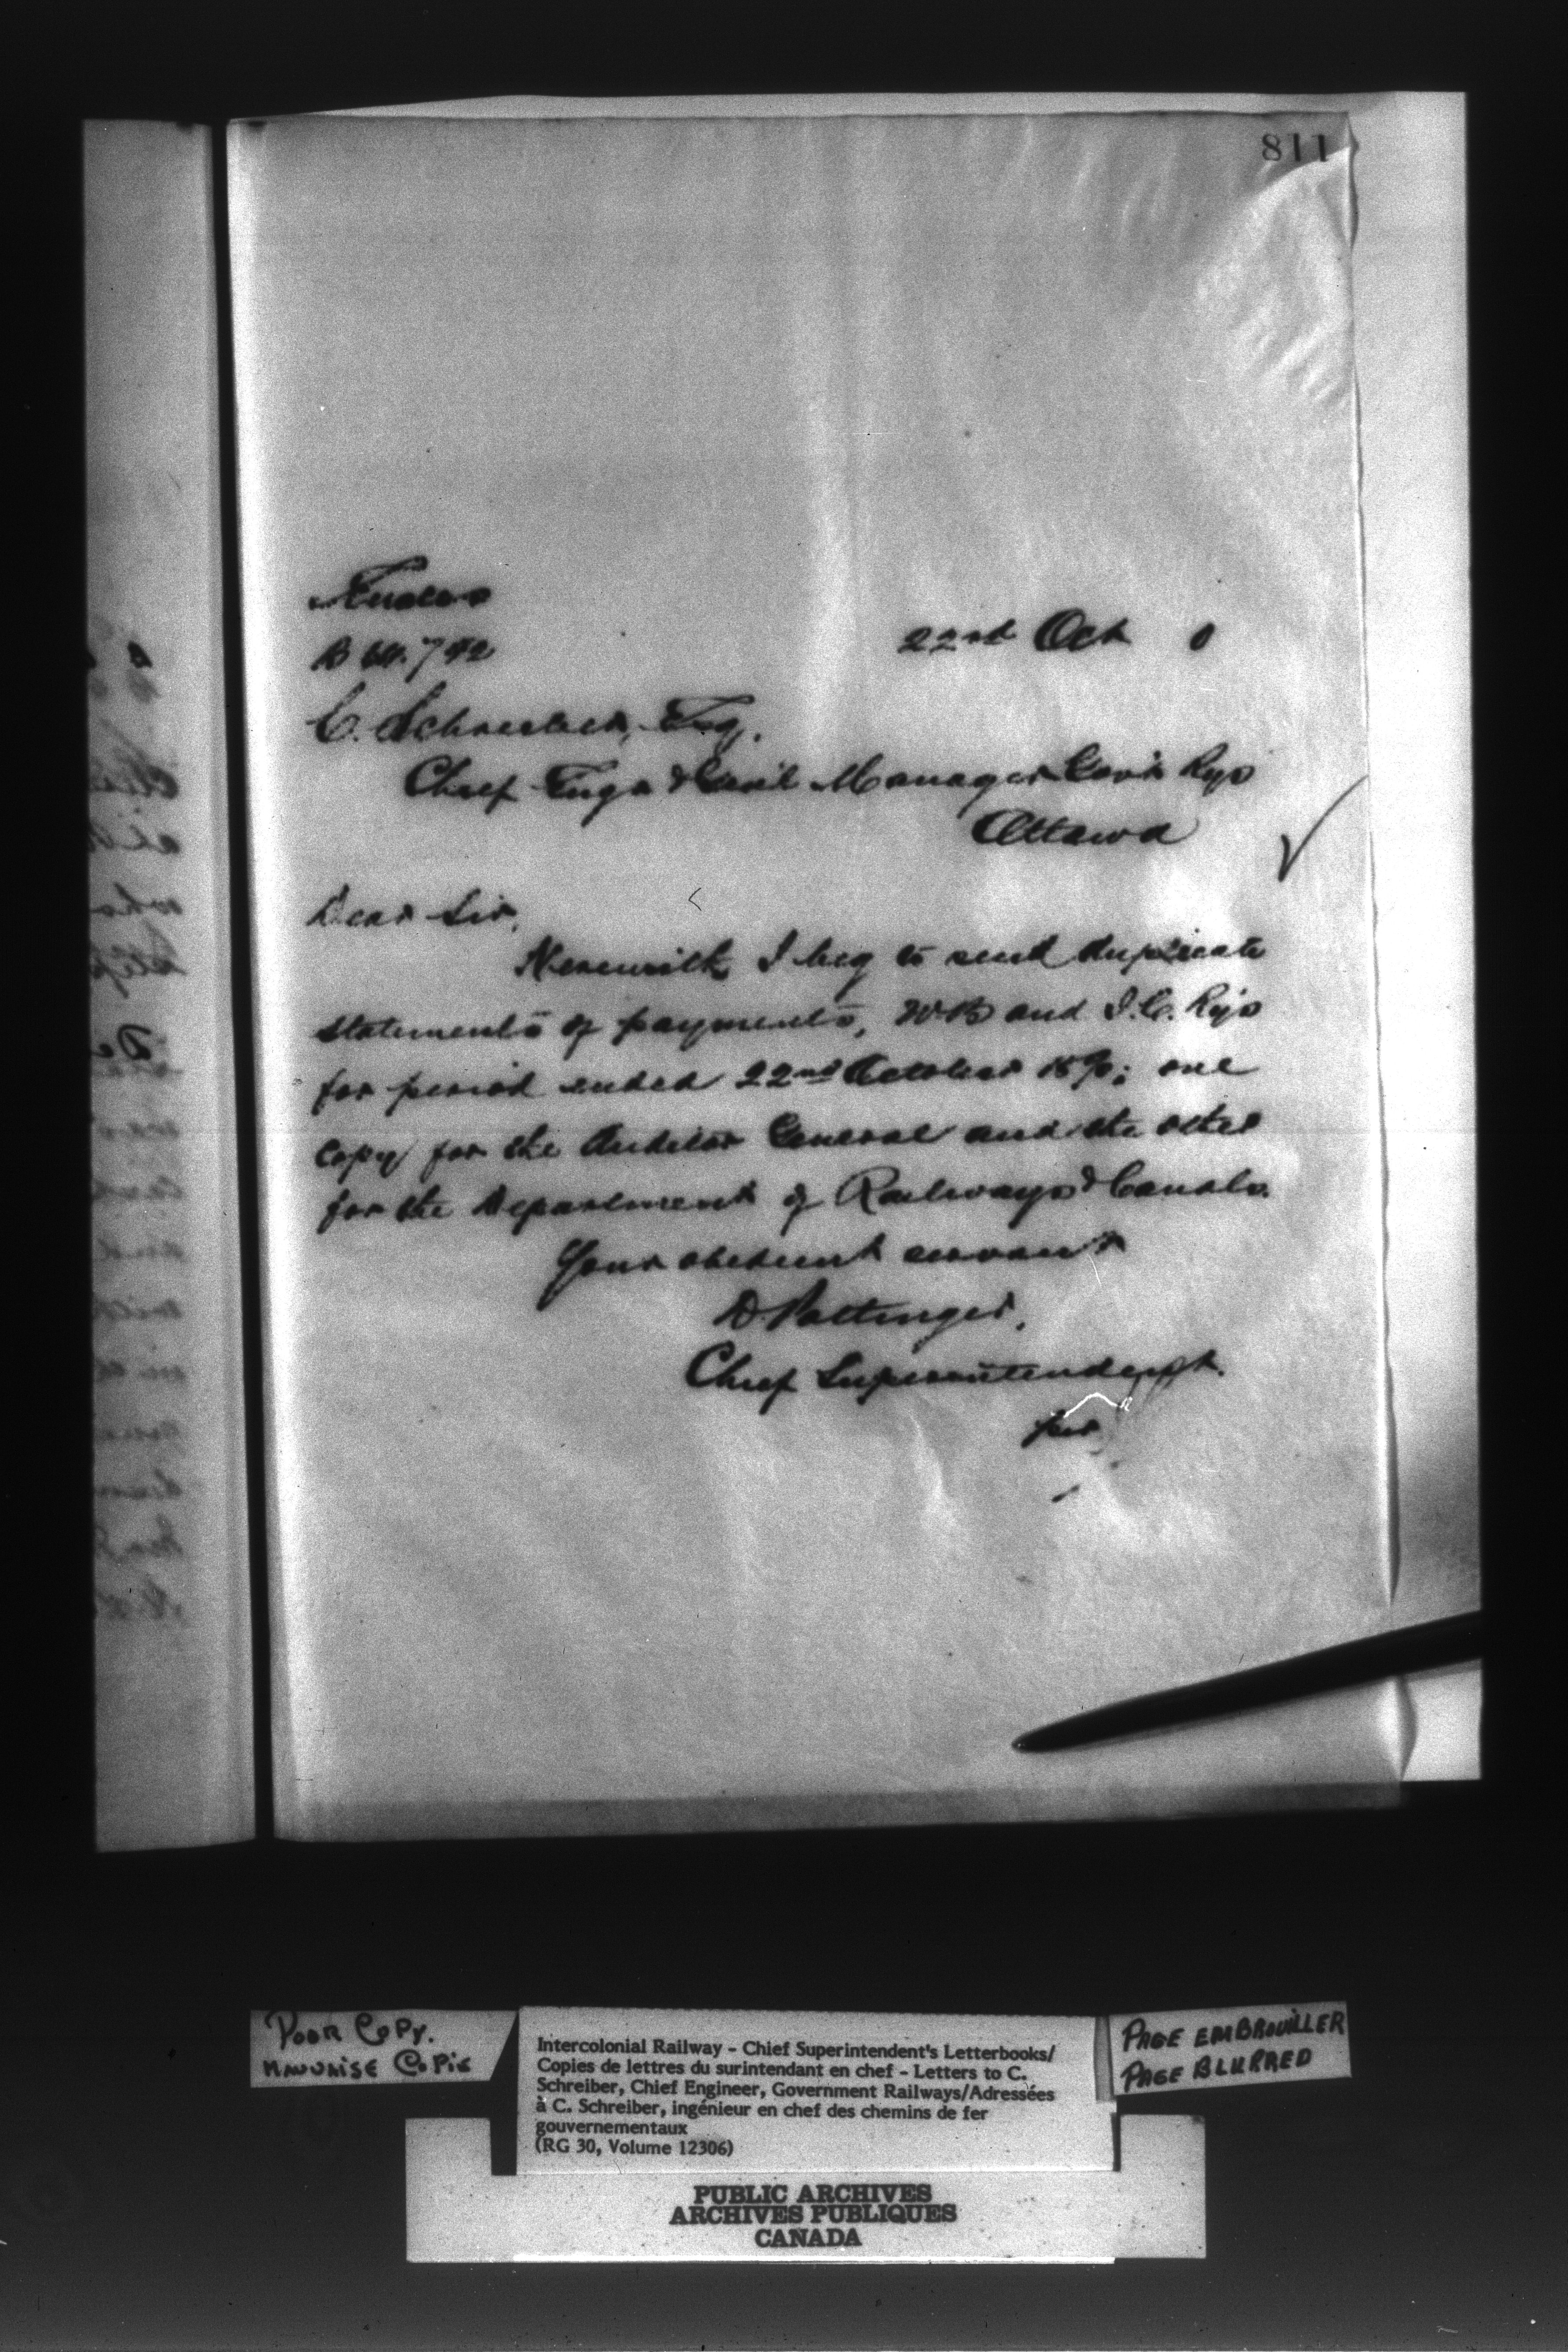 811
Encler
22nd Oct 0
C. Schreiber, Esq.
Chief Engr & Genl Manager Govt Rys
Ottawa
Dear Sir,
Herewith I beg to send duplicate
statements of payments, and I.C. Rys
for period ended 22nd October 1890; one
copy for the Auditor General and the other
for the Department of Railways & Canals.
Your obedient servant
D Pottinger,
Chief Superintendent.
per
POOR COPY.
MAUVAISE COPIE
Intercolonial Railway - Chief Superintendent's Letterbooks/
Copies de lettres du surintendant en chef - Letters to C.
Schreiber, Chief Engineer, Government Railways/Adressées
à C. Schreiber, ingénieur en chef des chemins de fer
gouvernementaux
(RG 30, Volume 12306)
PAGE EMBROUILLER
PAGE BLURRED
PUBLIC ARCHIVES
ARCHIVES PUBLIQUES
CANADA